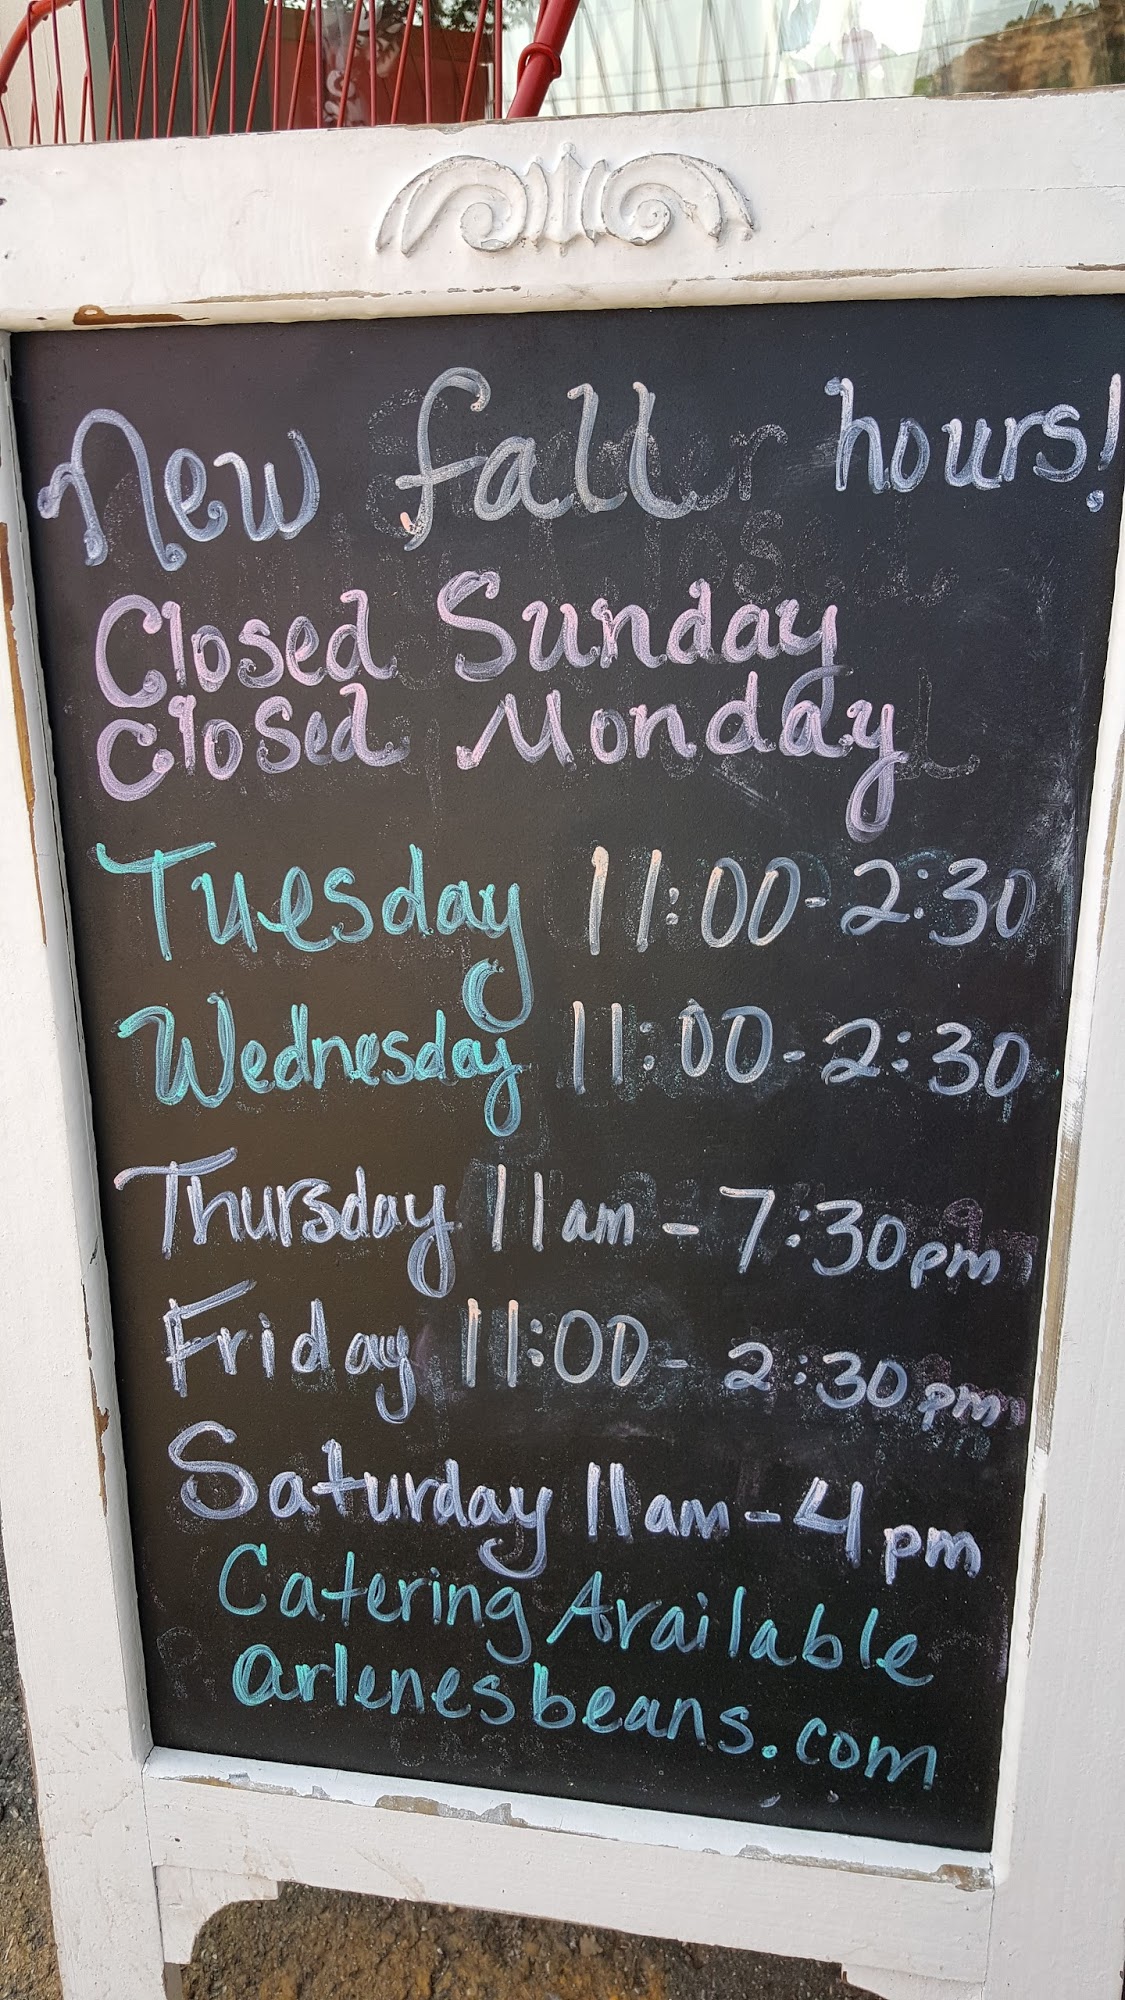 New fall hours!
Closed Sunday
Closed Monday
Tuesday 11:00-2:30
Wednesday 11:00-2:30
Thursday 11am - 7:30pm
Friday 11:00- 2:30pm
Saturday 11am - 4pm
Catering Available
arlenesbeans.com